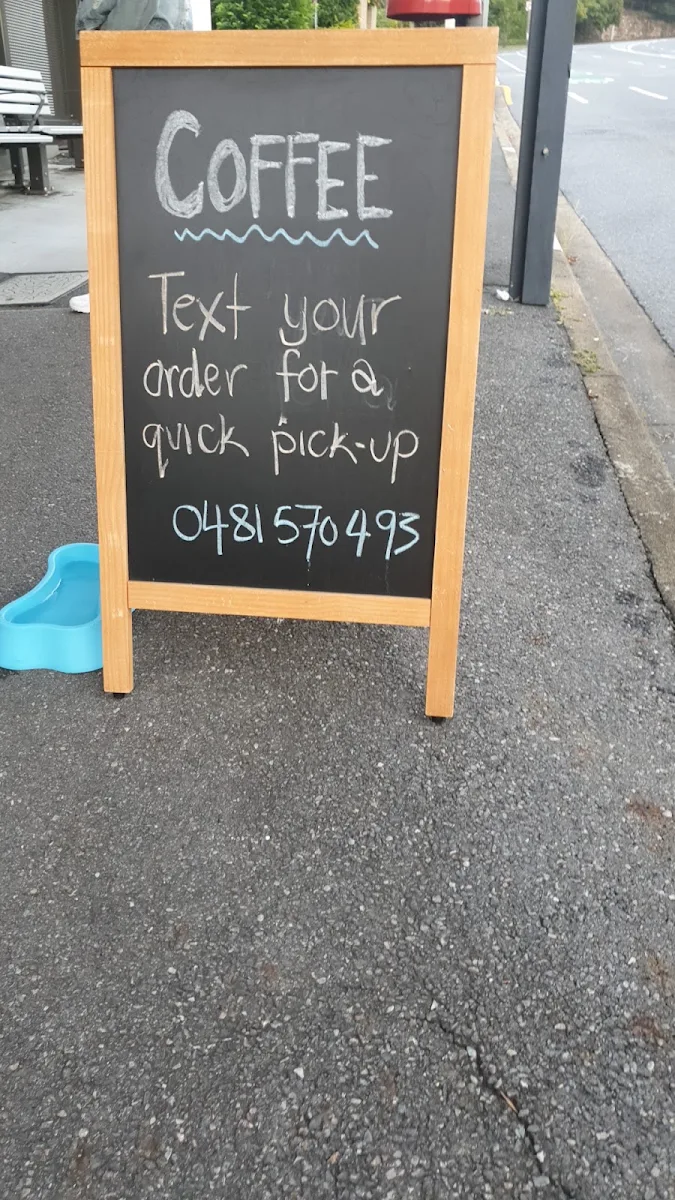 COFFEE
Text your
order for a
quick pick-up
0481570493